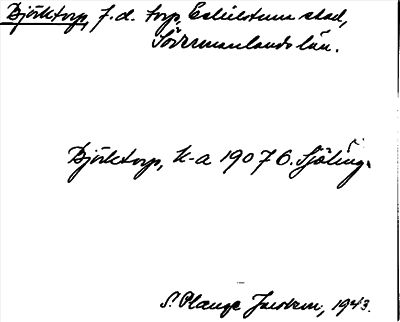 Björktorp, f.d. torp, Eskilstuna stad,
Södermanlands län.
Björktorp, K-a 1907 G. Sjöling.
S. Plange 1943.